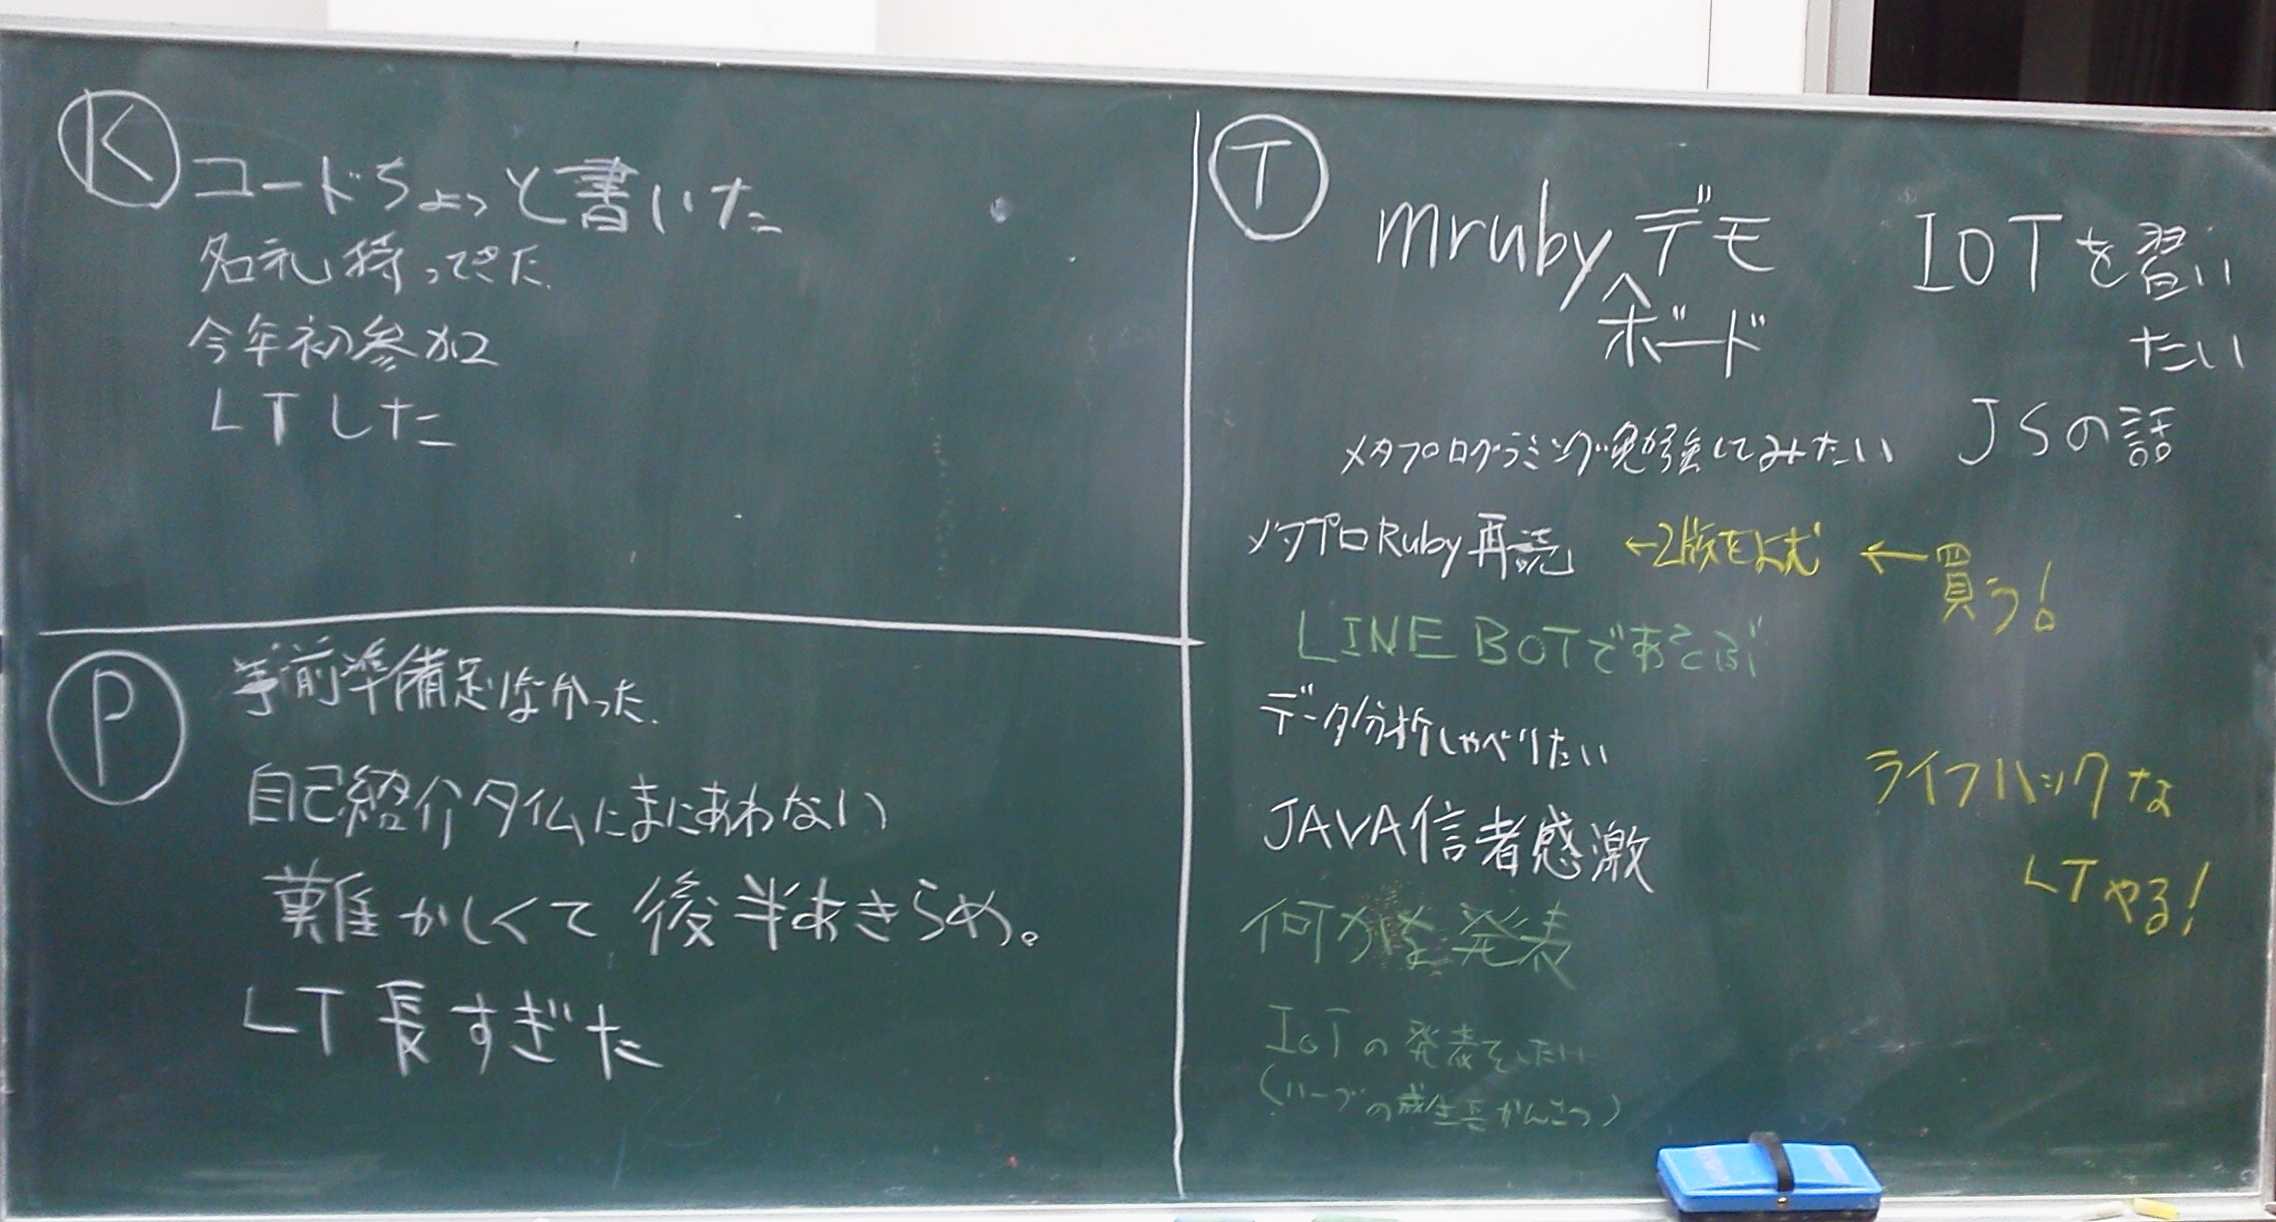 K
コードちょっと書いた
名札持ってきた
今年初参加
LTした
P
事前準備足りなかった
自己紹介タイムにまにあわない
難かしくて 後半あきらめ。
LT長すぎた
T
mruby デモ
ボード
IOTを習い
たい
JSの話
メタプログラミング勉強してみたい
メタプロRuby再読 ←2版をよむ ←買う!
LINE BOTであそぶ
データ分析しゃべりたい
JAVA信者感激
ライフハックな
LTやる!
何かな発表
IoTの発表をしたい
(ハーブの成生長かんさつ)